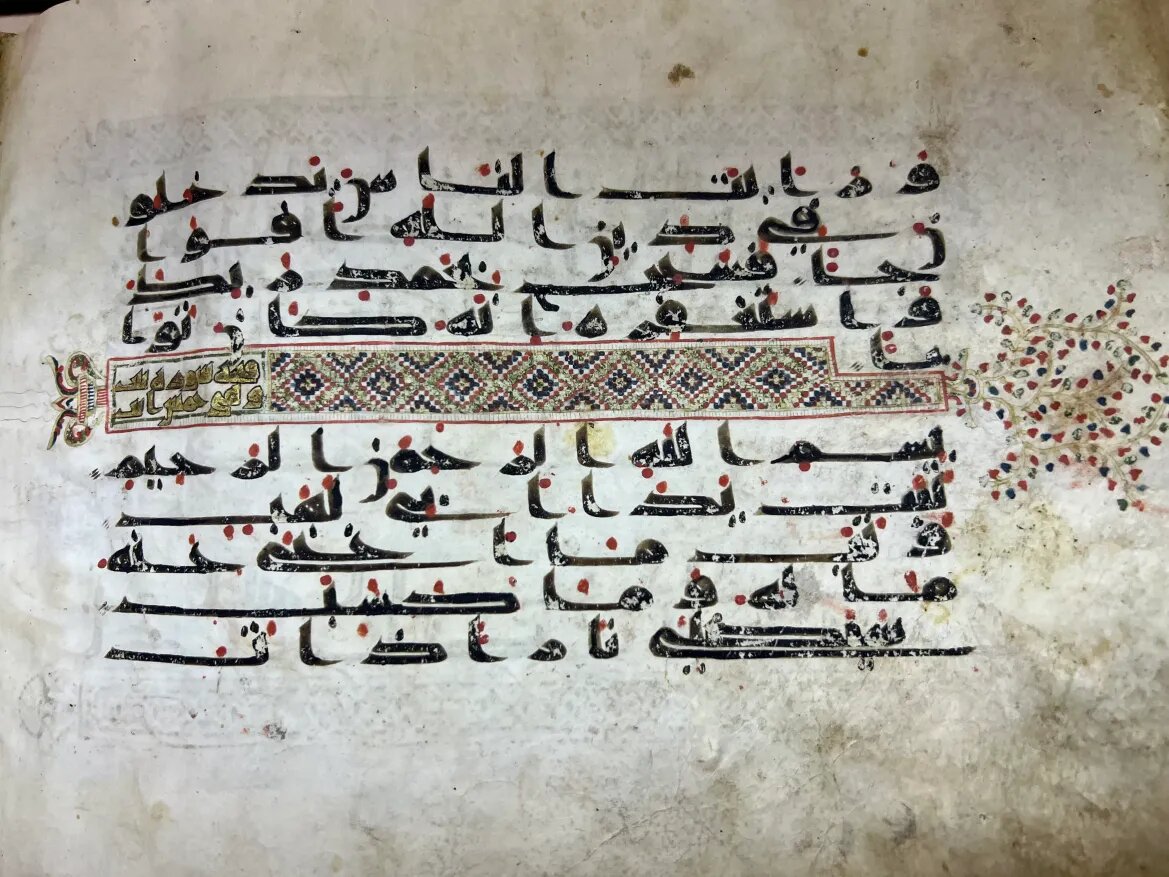 ورايت الناس يدخلو
ن في دين الله افوا
جا فسبح بحمد ربك
واستغفره انه كان توا
با
سوره تبت
وهي خمس ايت
بسم الله الرحمن الرحيم
تبت يدا ابي لهب
وتب ما اغنى عنه
ماله وما كسب
سيصلى نارا ذات